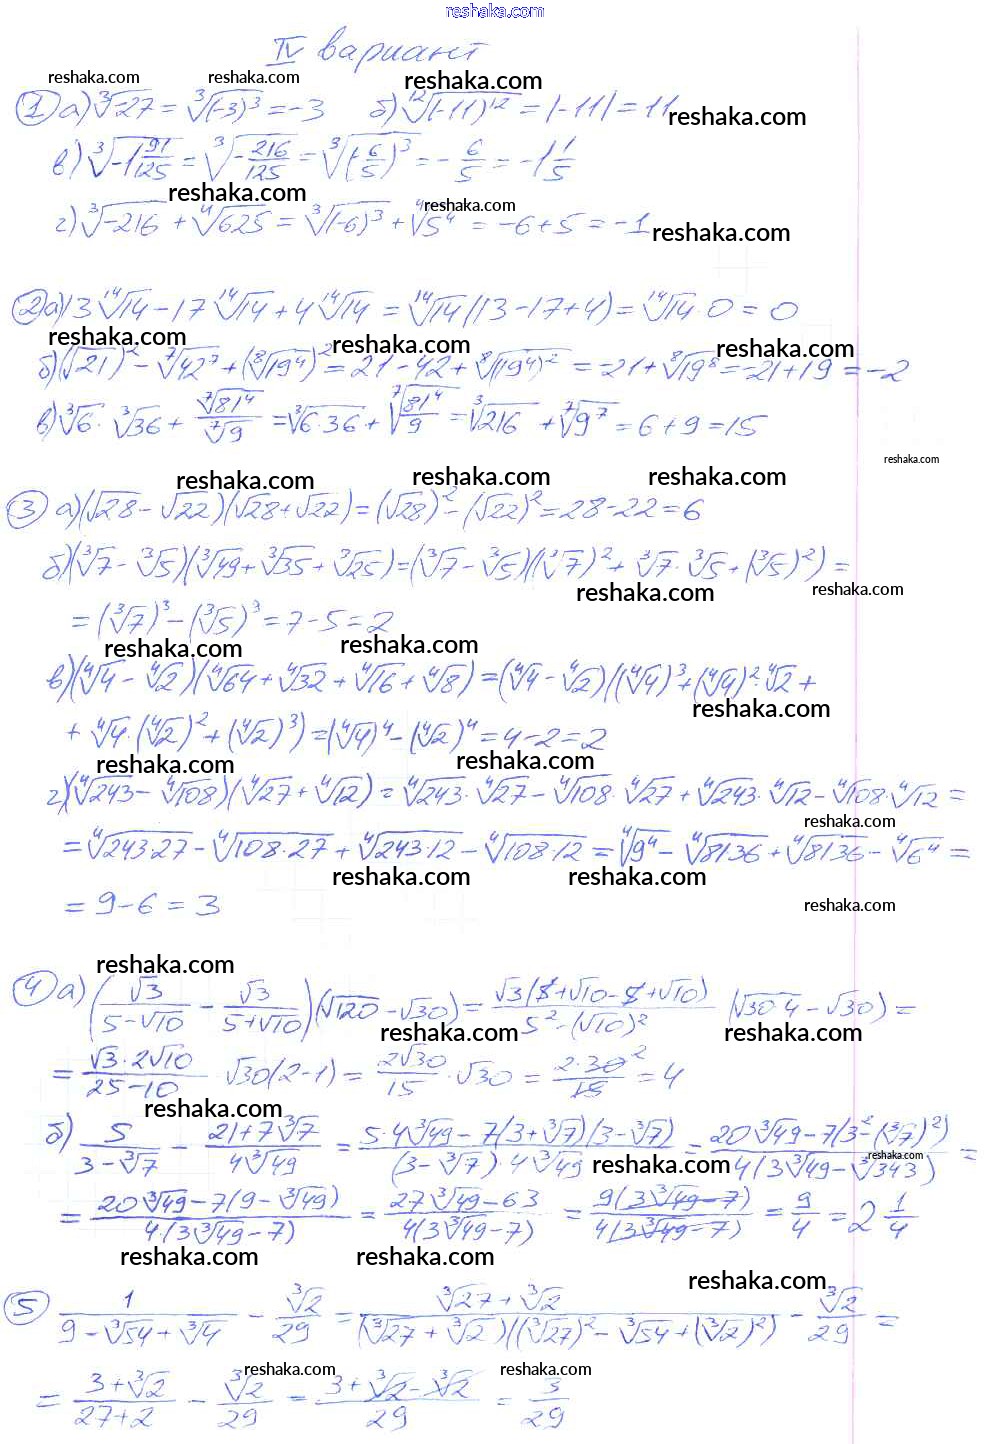 reshaka.com
IV вариант
reshaka.com reshaka.com reshaka.com
① а) ∛-27 = ∛(-3)³ = -3 б) ¹²√(-11)¹² = |-11| = 11 reshaka.com
в) ∛-1 91/125 = ∛-216/125 = ∛(-6/5)³ = -6/5 = -1 1/5
reshaka.com reshaka.com
г) ∛-216 + ∜625 = ∛(-6)³ + ∜5⁴ = -6+5 = -1 reshaka.com
② а) 13 ¹⁴√14 - 17 ¹⁴√14 + 4 ¹⁴√14 = ¹⁴√14 (13-17+4) = ¹⁴√14 · 0 = 0
reshaka.com reshaka.com reshaka.com
б) (√21)² - ⁷√42⁷ + (⁸√19⁴)² = 21 - 42 + ⁸√(19⁴)² = -21 + ⁸√19⁸ = -21+19 = -2
в) ∛6 · ∛36 + ⁷√81⁴/⁷√9 = ∛6·36 + ⁷√81⁴/9 = ∛216 + ⁷√9⁷ = 6+9 = 15
reshaka.com
reshaka.com reshaka.com reshaka.com
③ а) (√28 - √22)(√28 + √22) = (√28)² - (√22)² = 28-22 = 6
б) (∛7 - ∛5)(∛49 + ∛35 + ∛25) = (∛7 - ∛5)((∛7)² + ∛7 · ∛5 + (∛5)²) =
reshaka.com reshaka.com
= (∛7)³ - (∛5)³ = 7-5 = 2
reshaka.com reshaka.com
в) (∜4 - ∜2)(∜64 + ∜32 + ∜16 + ∜8) = (∜4 - ∜2)((∜4)³ + (∜4)² ∜2 +
reshaka.com
+ ∜4 · (∜2)² + (∜2)³) = (∜4)⁴ - (∜2)⁴ = 4-2 = 2
reshaka.com reshaka.com
г) (∜243 - ∜108)(∜27 + ∜12) = ∜243 · ∜27 - ∜108 · ∜27 + ∜243 · ∜12 - ∜108 · ∜12 =
reshaka.com
= ∜243·27 - ∜108·27 + ∜243·12 - ∜108·12 = ∜9⁴ - ∜81·36 + ∜81·36 - ∜6⁴ =
reshaka.com reshaka.com
= 9-6 = 3 reshaka.com
reshaka.com
④ а) (√3/(5-√10) - √3/(5+√10))(√120 - √30) = √3(5+√10-5+√10)/(5²-(√10)²) (√30·4 - √30) =
reshaka.com reshaka.com
= √3·2√10/(25-10) · √30(2-1) = 2√30/15 · √30 = 2·30²/15 = 4
reshaka.com
б) 5/(3-∛7) - (21+7∛7)/(4∛49) = (5·4∛49 - 7(3+∛7)(3-∛7))/((3-∛7)·4∛49) = (20∛49 - 7(3²-(∛7)²))/(4(3∛49-∛343)) =
reshaka.com reshaka.com
= (20∛49 - 7(9-∛49))/(4(3∛49-7)) = (27∛49-63)/(4(3∛49-7)) = 9(3∛49-7)/(4(3∛49-7)) = 9/4 = 2 1/4
reshaka.com reshaka.com
reshaka.com
⑤ 1/(9-∛54+∛4) - ∛2/29 = (∛27+∛2)/((∛27+∛2)((∛27)²-∛54+(∛2)²)) - ∛2/29 =
reshaka.com reshaka.com
= (3+∛2)/(27+2) - ∛2/29 = (3+∛2-∛2)/29 = 3/29